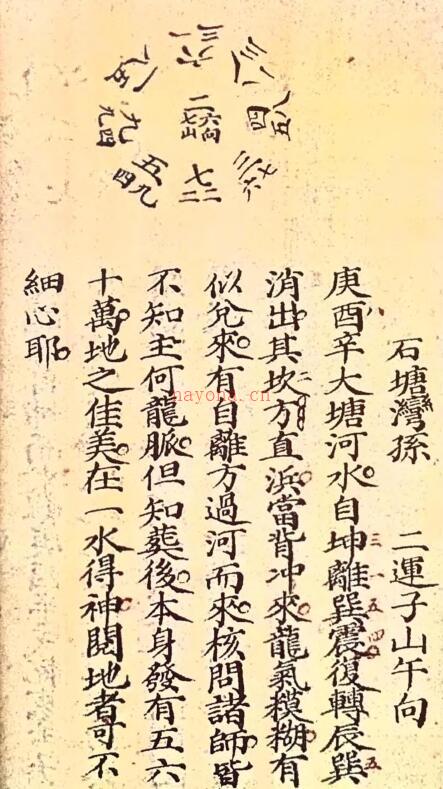 二
六向
七山
石塘灣孫 二運子山午向
庚酉辛大塘河水自坤離巽震復轉辰巽
消出其坎方直浜當背冲來龍氣糢糊有
似兌來有自離方過河而來核問諸師皆
不知主何龍脈但知葬後本身發有五六
十萬地之佳美在一水得神閱地者可不
細心耶
nayona.cn